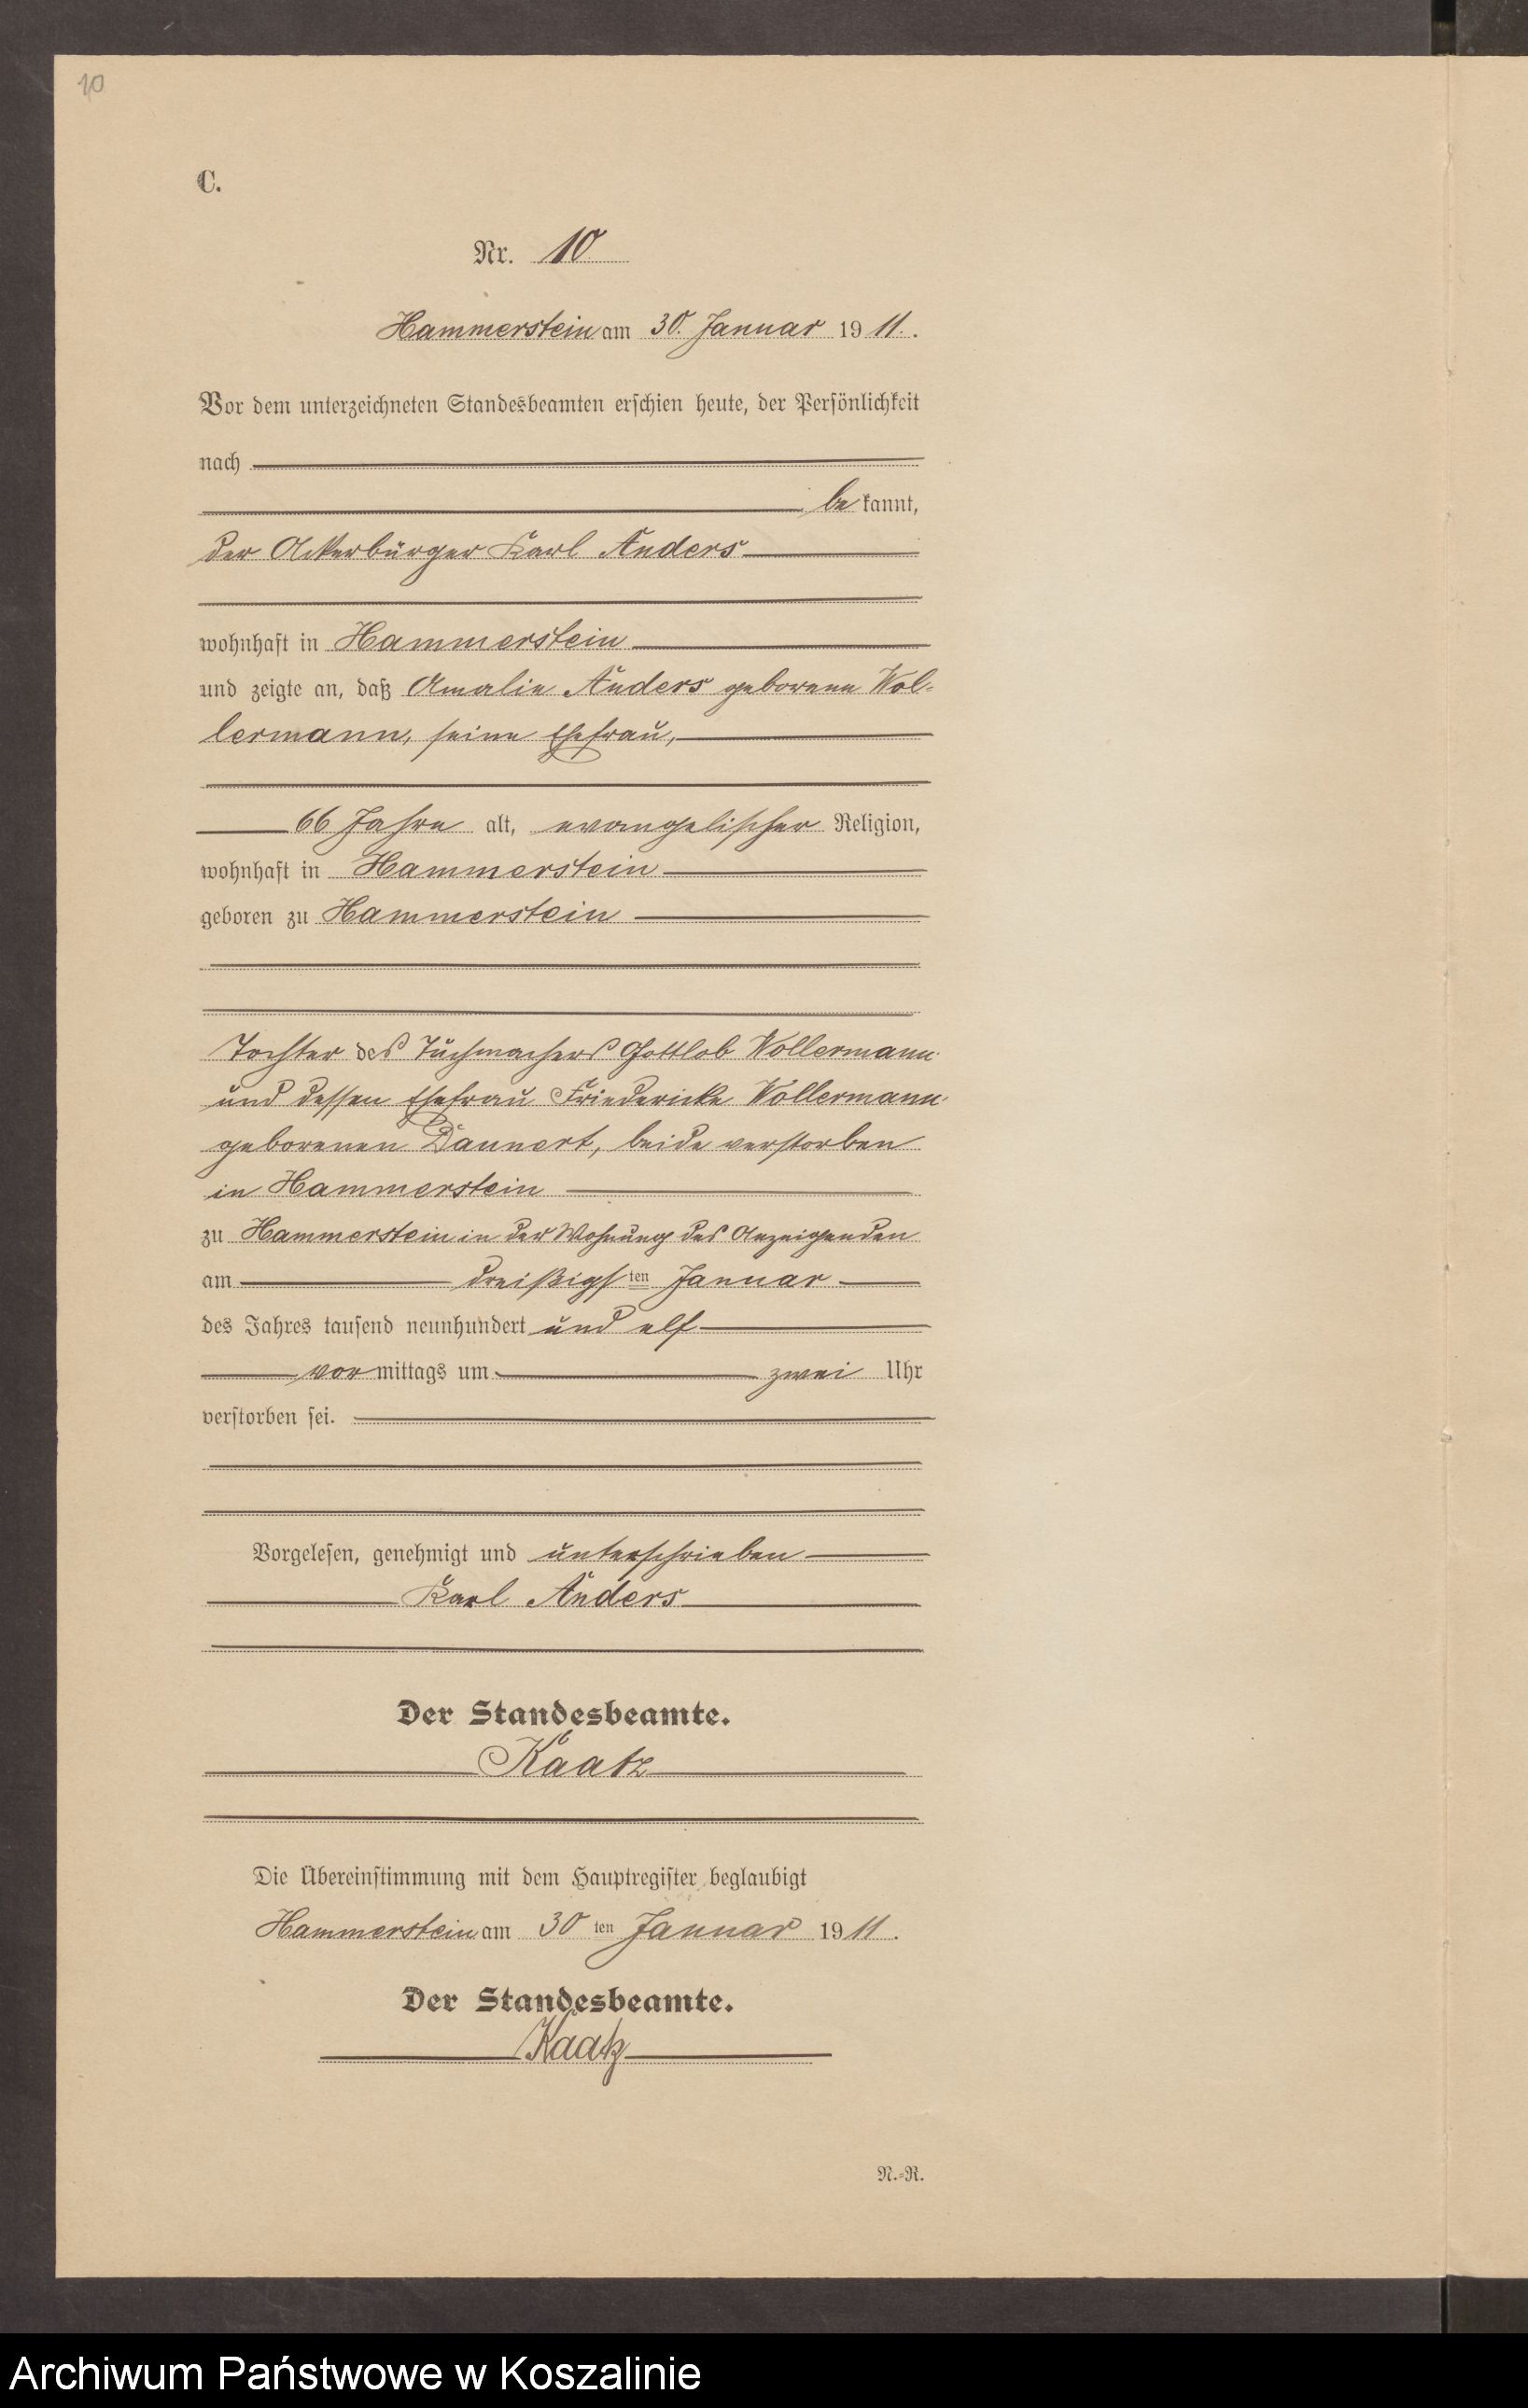 10
C.
Nr. 10
Hammerstein am 30. Januar 1911.
Vor dem unterzeichneten Standesbeamten erschien heute, der Persönlichkeit
nach
bekannt,
der Ackerbürger Karl Anders
wohnhaft in Hammerstein
und zeigte an, daß Amalie Anders geborene Wol-
lermann, seine Ehefrau,
66 Jahre alt, evangelischer Religion,
wohnhaft in Hammerstein
geboren zu Hammerstein
Tochter des Tuchmachers Gottlob Wollermann
und dessen Ehefrau Friedericke Wollermann
geborenen Dannert, beide verstorben
in Hammerstein
zu Hammerstein in der Wohnung des Anzeigenden
am dreißigsten Januar
des Jahres tausend neunhundert und elf
vormittags um zwei Uhr
verstorben sei.
Vorgelesen, genehmigt und unterschrieben
Karl Anders
Der Standesbeamte.
Kaatz
Die Übereinstimmung mit dem Hauptregister beglaubigt
Hammerstein am 30ten Januar 1911.
Der Standesbeamte.
Kaatz
N.-R.
Archiwum Państwowe w Koszalinie